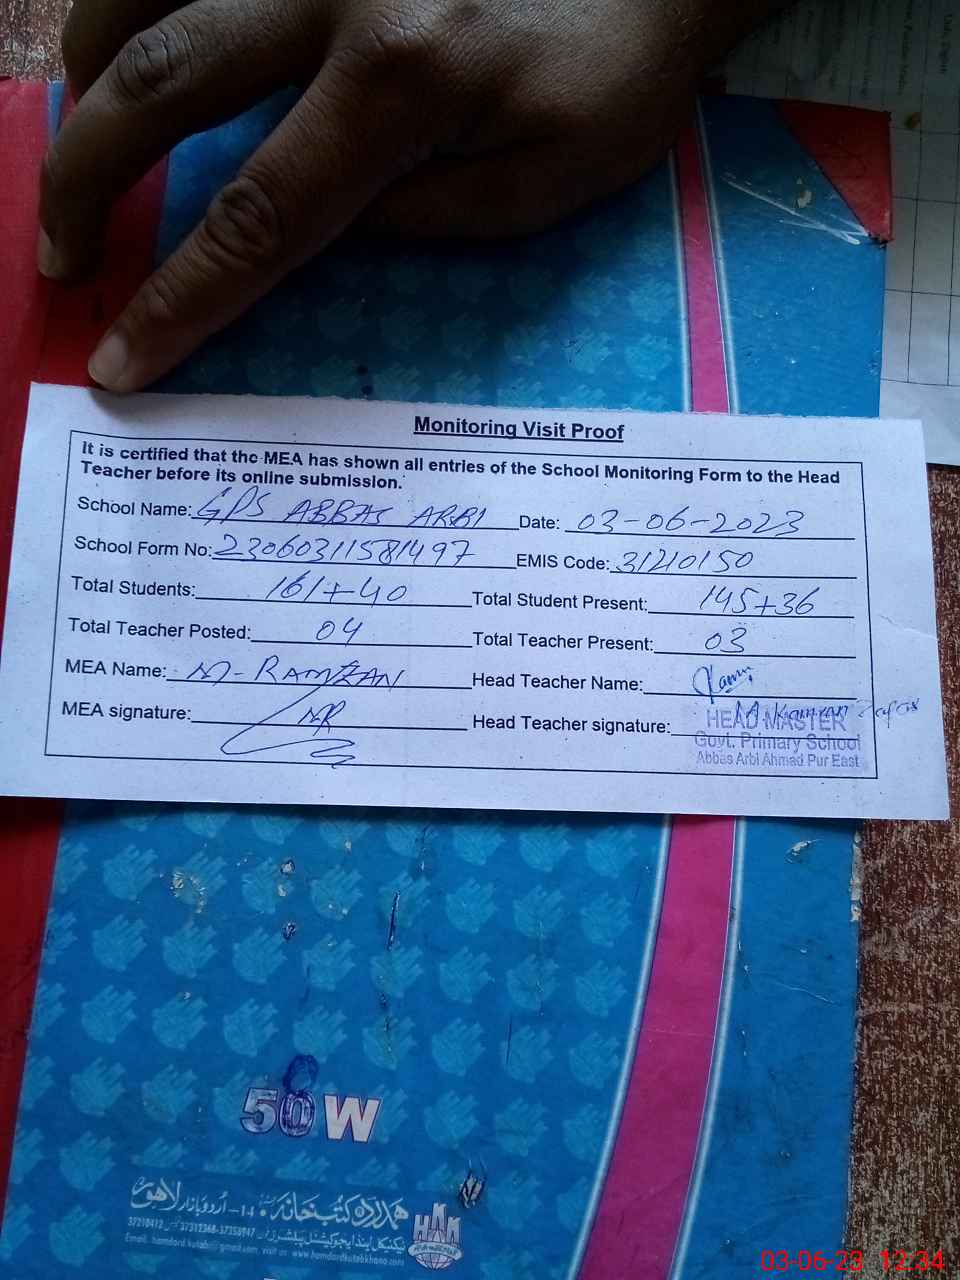 Monitoring Visit Proof
It is certified that the MEA has shown all entries of the School Monitoring Form to the Head
Teacher before its online submission.
School Name: GPS ABBAS ARBI Date: 03-06-2023
School Form No: 2306031158 1497 EMIS Code: 31210150
Total Students: 161+40 Total Student Present: 145+36
Total Teacher Posted: 04 Total Teacher Present: 03
MEA Name: M-RAMZAN Head Teacher Name:
MEA signature: MR Head Teacher signature: M Kamran Zafar
HEAD MASTER
Govt. Primary School
Abbas Arbi Ahmad Pur East
50W
ہمدرد کتب خانہ 14-اُردو بازار لاہور
37210412 37312368-37353947
visit us www.hamdardkutabkhana.com
03-06-23 12:34